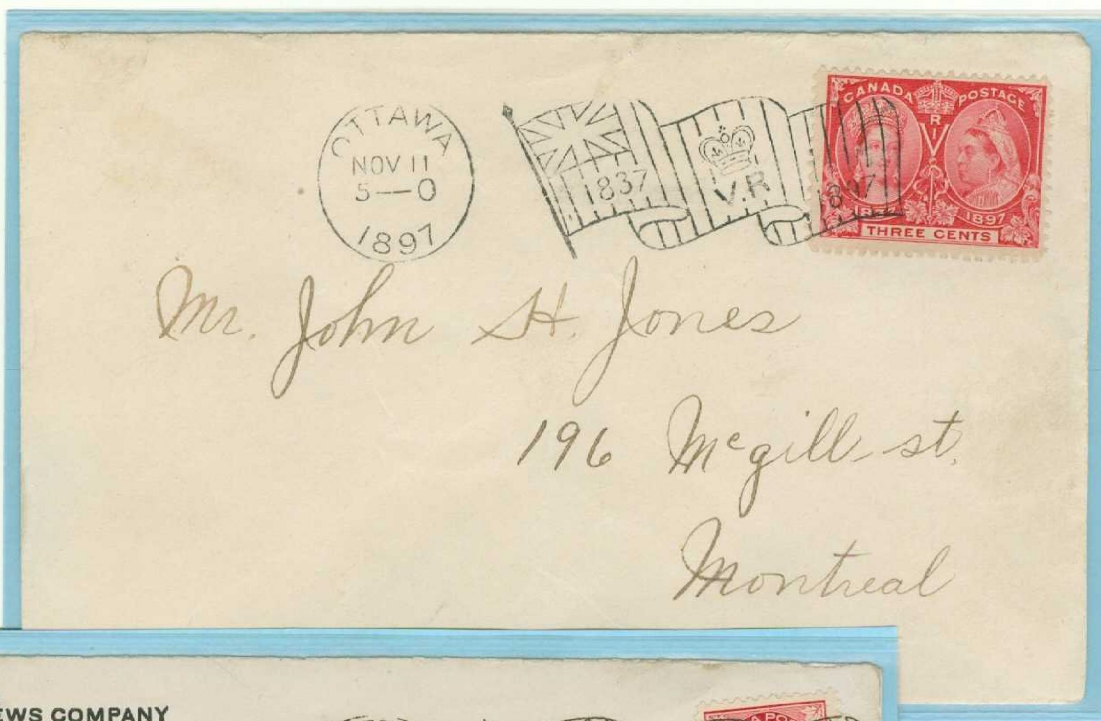 OTTAWA
NOV 11
5—0
1897
1837
V.R
1897
CANADA POSTAGE
V R I
1897
THREE CENTS
Mr. John H. Jones
196 McGill st.
Montreal
EWS COMPANY
A PO